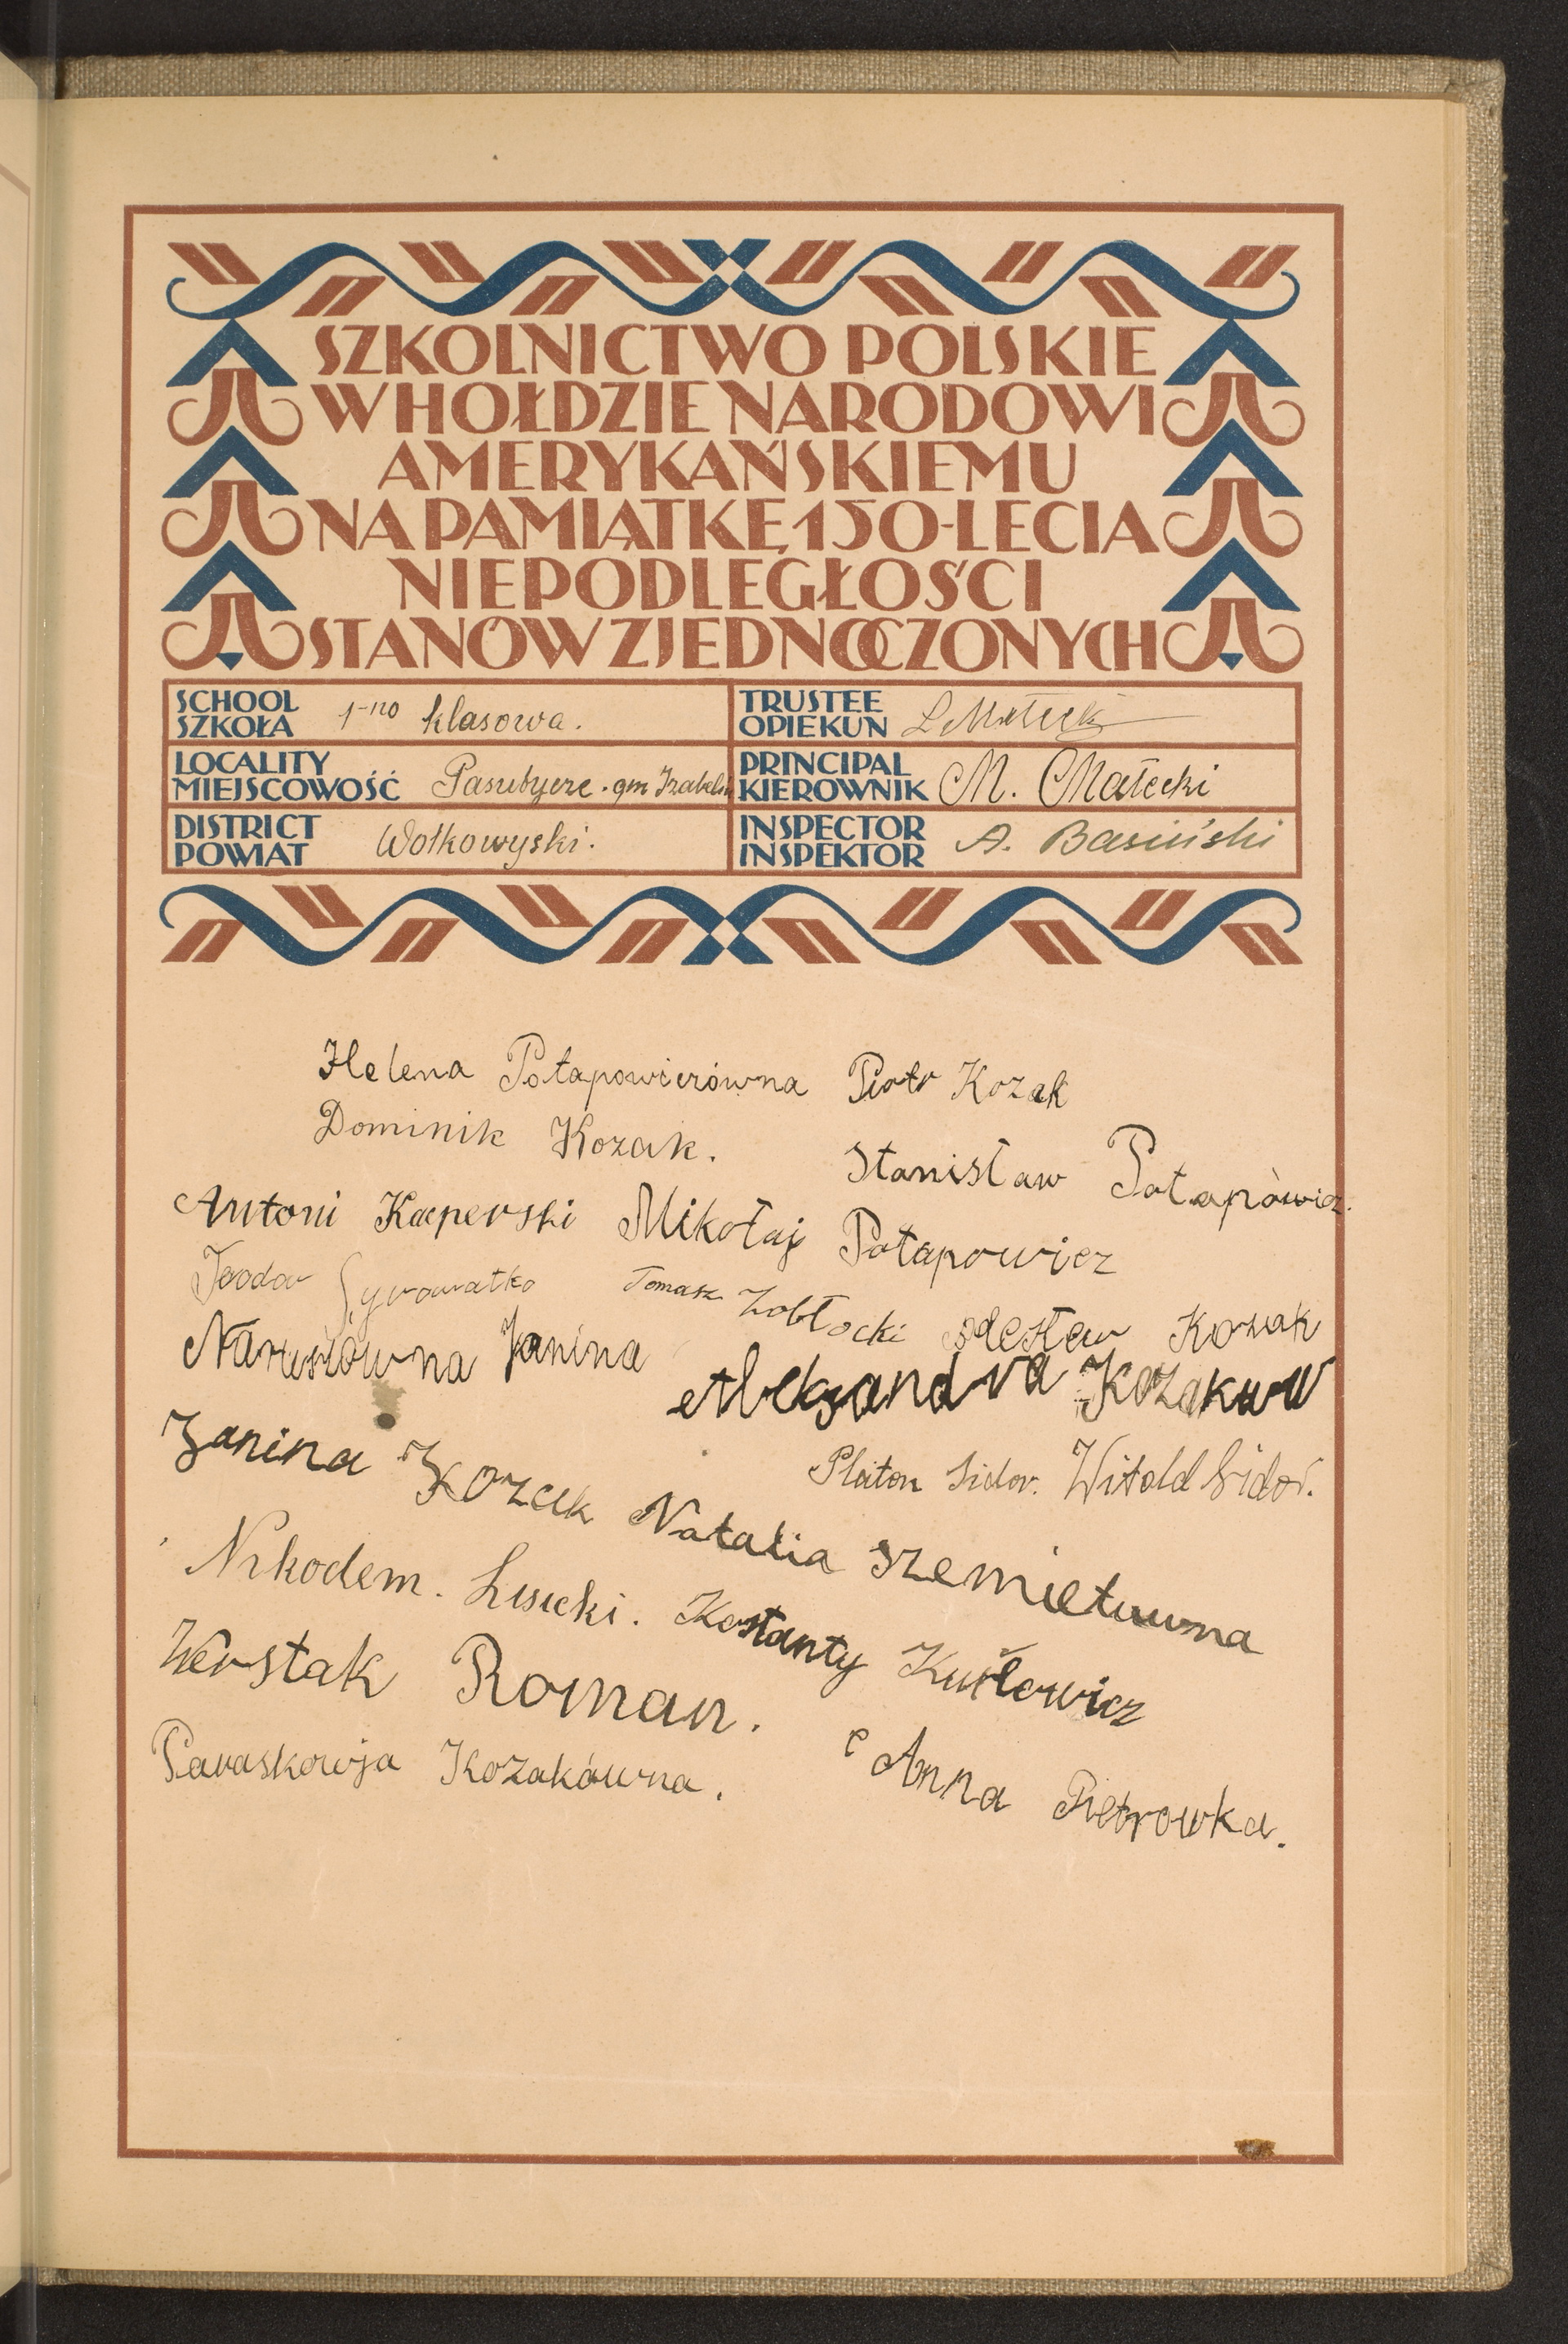 SZKOLNICTWO POLSKIE
W HOŁDZIE NARODOWI
AMERYKAŃSKIEMU
NA PAMIĄTKĘ 150-LECIA
NIEPODLEGŁOŚCI
STANÓW ZJEDNOCZONYCH
SCHOOL
SZKOŁA 1-no klasowa.
TRUSTEE
OPIEKUN
LOCALITY
MIEJSCOWOŚĆ gm Izabelin
PRINCIPAL
KIEROWNIK M. Małecki
DISTRICT
POWIAT Wołkowyski.
INSPECTOR
INSPEKTOR A. Basiński
Helena Potapowiczówna Piotr Kozak
Dominik Kozak. Stanisław Potapòwicz.
Antoni Kacperski Mikołaj Potapowicz
Teodor Syrowatko Tomasz Zobłocki Kozak
Janina Aleksandra
Janina Kozak Platon Sidor. Witold Sidor.
Natalia Szemietuwna
Nikodem. Lisicki. Kostanty Kuźlewicz
Werstak Roman.
Paraskowja Kozakówna. Anna Pietrowka.